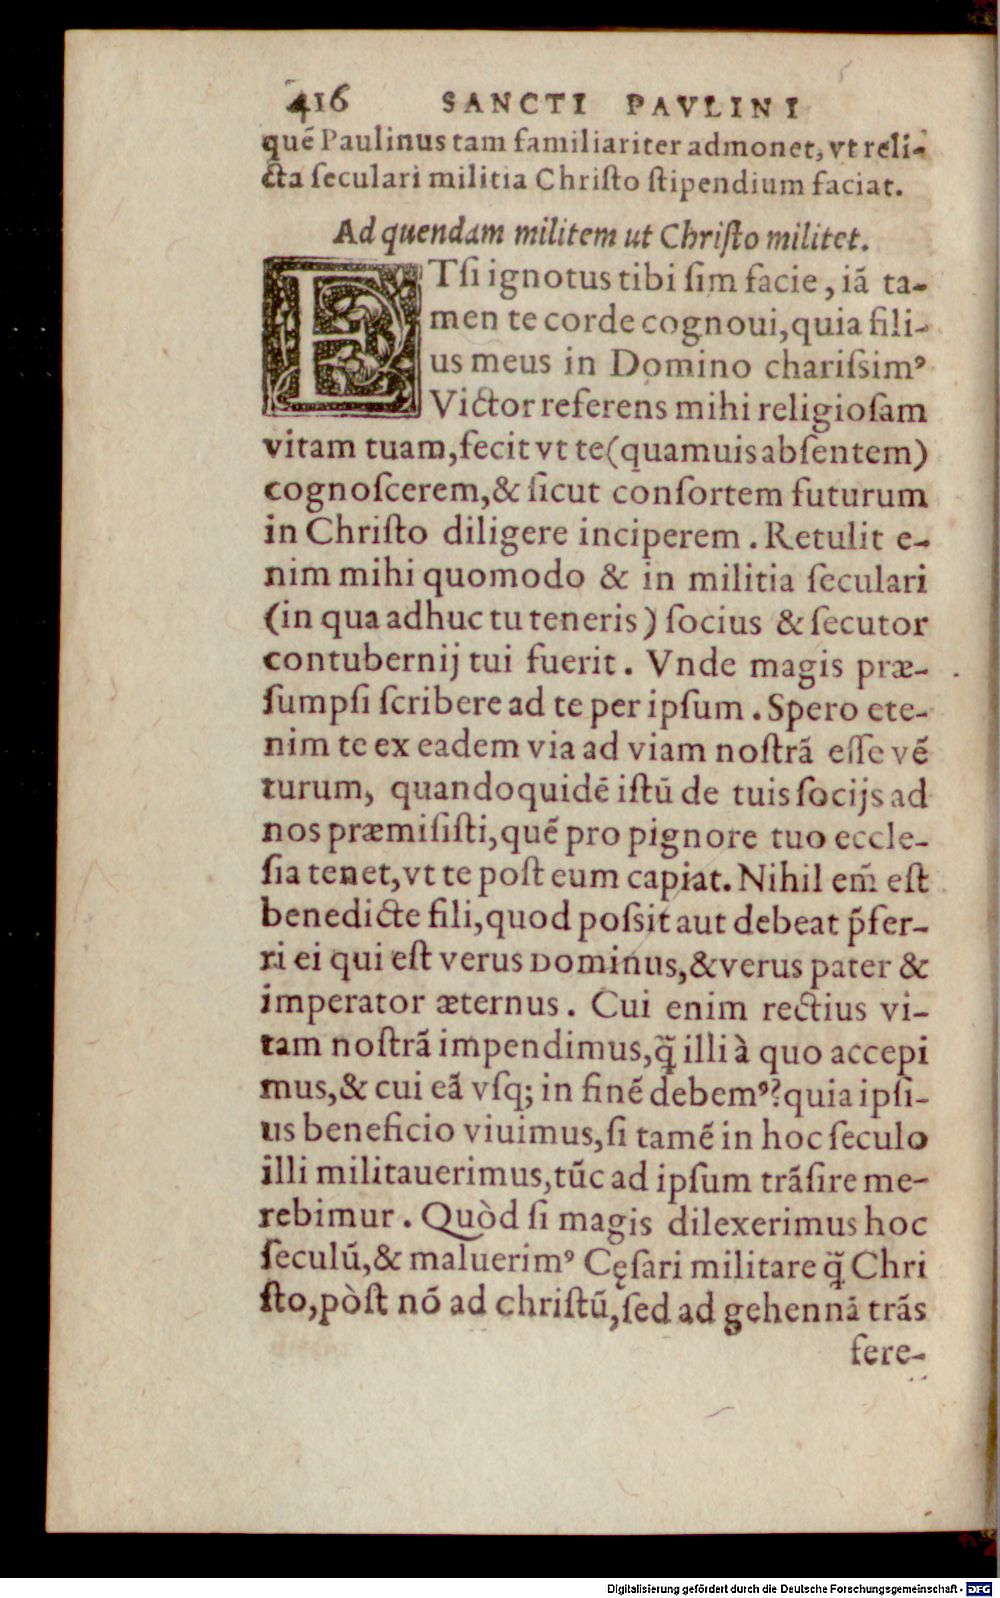 416 SANCTI PAVLINI
quē Paulinus tam familiariter admonet, vt reli-
cta ſeculari militia Chriſto ſtipendium faciat.
Ad quendam militem ut Chriſto militet.
ETſi ignotus tibi ſim facie, iā ta-
men te corde cognoui, quia fili-
us meus in Domino chariſsimꝰ
Victor referens mihi religioſam
vitam tuam, fecit vt te (quamuis abſentem)
cognoſcerem, & ſicut conſortem futurum
in Chriſto diligere inciperem. Retulit e-
nim mihi quomodo & in militia ſeculari
(in qua adhuc tu teneris) ſocius & ſecutor
contubernij tui fuerit. Vnde magis præ-
ſumpſi ſcribere ad te per ipſum. Spero ete-
nim te ex eadem via ad viam noſtrā eſſe vē
turum, quandoquidē iſtū de tuis ſocijs ad
nos præmiſiſti, quē pro pignore tuo eccle-
ſia tenet, vt te poſt eum capiat. Nihil em̄ eſt
benedicte fili, quod poſsit aut debeat p̄fer-
ri ei qui eſt verus Dominus, & verus pater &
imperator æternus. Cui enim rectius vi-
tam noſtrā impendimus, q̄ illi à quo accepi
mus, & cui eā vſq; in finē debemꝰ? quia ipſi-
us beneficio viuimus, ſi tamē in hoc ſeculo
illi militauerimus, tūc ad ipſum trāſire me-
rebimur. Quòd ſi magis dilexerimus hoc
ſeculū, & maluerimꝰ Cęſari militare q̄ Chri
ſto, pòſt nō ad chriſtū, ſed ad gehennā trāſ
fere-
Digitalisierung gefördert durch die Deutsche Forschungsgemeinschaft - DFG